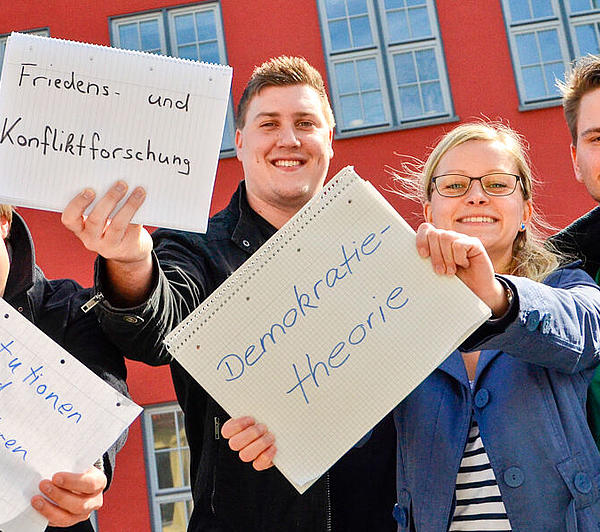 Friedens- und
Konfliktforschung
Demokratie-
theorie